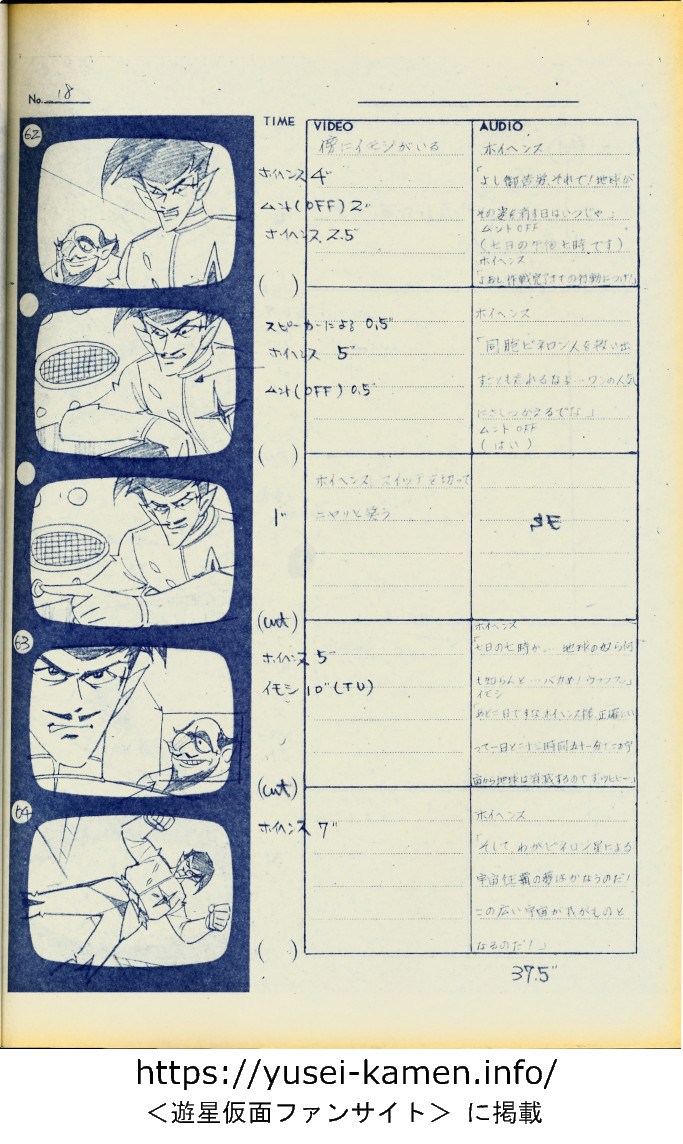 No. 18
TIME
VIDEO
AUDIO
62
傍にイモシがいる
ホイヘンス 4"
ムント(OFF) 2"
ホイヘンス 2.5"
( )
ホイヘンス
「よし御苦労、それで!地球が
その姿を消す日はいつじゃ」
ムントOFF
(七日の午后七時です)
ホイヘンス
スピーカーによる 0.5"
ホイヘンス 5"
ムント(OFF) 0.5"
( )
ホイヘンス
「同胞ピネロン人を救い出
すことも忘れるなよ…ワンの人気
にさしつかえるでな」
ムントOFF
(はい)
ホイヘンス スイッチを切って
ニヤリと笑う
1"
(cut)
63
ホイヘンス 5"
イモシ 10"(TU)
(cut)
ホイヘンス
「七日の七時か… 地球の奴ら何
も知らんと…バカめ!
イモシ
「あと二日ですなホイヘンス様、正確にい
って一日と二十三時間五十一分!この宇
宙から地球は消滅するのです、ウヒヒー」
64
ホイヘンス 7"
( )
ホイヘンス
「そして わがピネロン星による
宇宙征覇の夢はかなうのだ!
この広い宇宙が我がものと
なるのだ!」
37.5"
https://yusei-kamen.info/
＜遊星仮面ファンサイト＞ に掲載